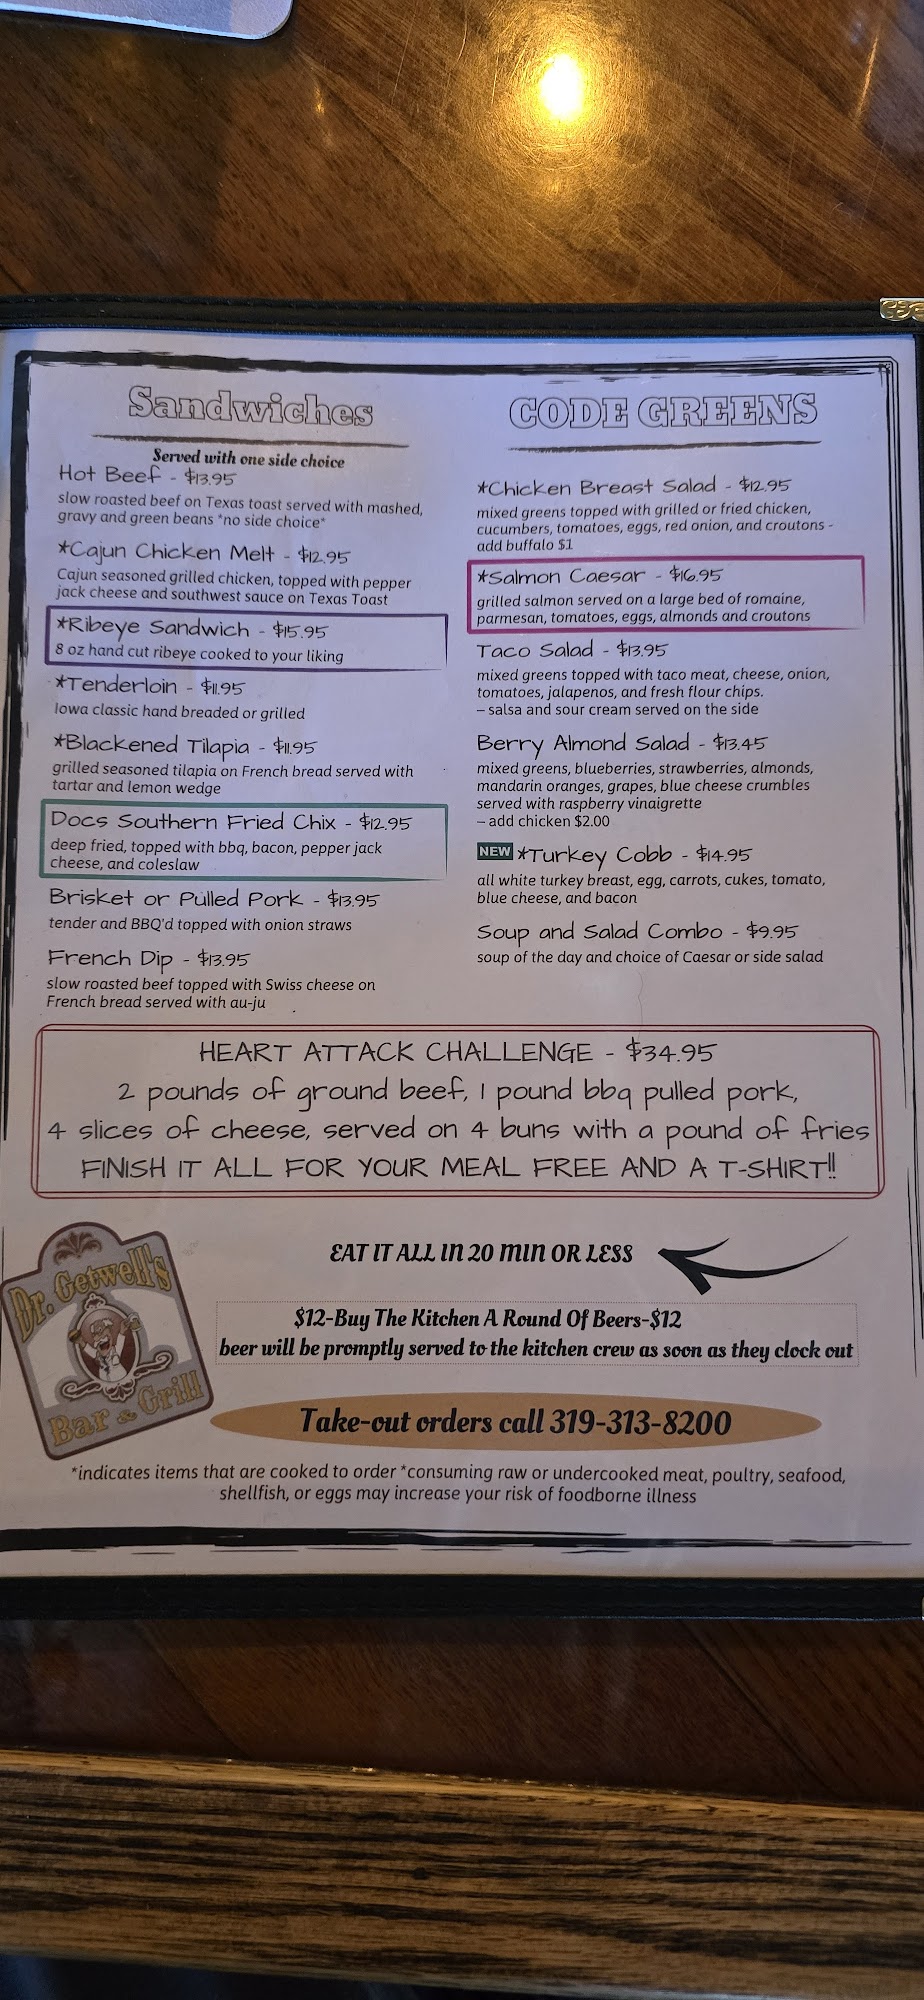 Sandwiches
Served with one side choice
Hot Beef - $13.95
slow roasted beef on Texas toast served with mashed,
gravy and green beans *no side choice*
*Cajun Chicken Melt - $12.95
Cajun seasoned grilled chicken, topped with pepper
jack cheese and southwest sauce on Texas Toast
*Ribeye Sandwich - $15.95
8 oz hand cut ribeye cooked to your liking
*Tenderloin - $11.95
Iowa classic hand breaded or grilled
*Blackened Tilapia - $11.95
grilled seasoned tilapia on French bread served with
tartar and lemon wedge
Docs Southern Fried Chix - $12.95
deep fried, topped with bbq, bacon, pepper jack
cheese, and coleslaw
Brisket or Pulled Pork - $13.95
tender and BBQ'd topped with onion straws
French Dip - $13.95
slow roasted beef topped with Swiss cheese on
French bread served with au-ju
CODE GREENS
*Chicken Breast Salad - $12.95
mixed greens topped with grilled or fried chicken,
cucumbers, tomatoes, eggs, red onion, and croutons -
add buffalo $1
*Salmon Caesar - $16.95
grilled salmon served on a large bed of romaine,
parmesan, tomatoes, eggs, almonds and croutons
Taco Salad - $13.95
mixed greens topped with taco meat, cheese, onion,
tomatoes, jalapenos, and fresh flour chips.
– salsa and sour cream served on the side
Berry Almond Salad - $13.45
mixed greens, blueberries, strawberries, almonds,
mandarin oranges, grapes, blue cheese crumbles
served with raspberry vinaigrette
– add chicken $2.00
NEW *Turkey Cobb - $14.95
all white turkey breast, egg, carrots, cukes, tomato,
blue cheese, and bacon
Soup and Salad Combo - $9.95
soup of the day and choice of Caesar or side salad
HEART ATTACK CHALLENGE - $34.95
2 pounds of ground beef, 1 pound bbq pulled pork,
4 slices of cheese, served on 4 buns with a pound of fries
FINISH IT ALL FOR YOUR MEAL FREE AND A T-SHIRT!!
EAT IT ALL IN 20 MIN OR LESS
Dr. Getwell's
Bar & Grill
$12-Buy The Kitchen A Round Of Beers-$12
beer will be promptly served to the kitchen crew as soon as they clock out
Take-out orders call 319-313-8200
*indicates items that are cooked to order *consuming raw or undercooked meat, poultry, seafood,
shellfish, or eggs may increase your risk of foodborne illness